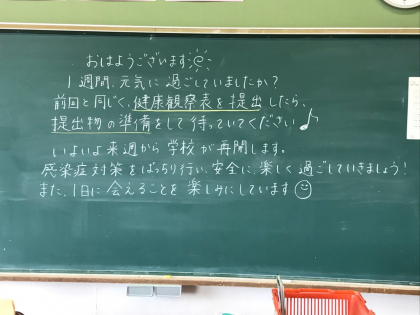 おはようございます
1週間、元気に過ごしていましたか？
前回と同じく、健康観察表を提出したら、
提出物の準備をして待っていてください♪
いよいよ来週から学校が再開します。
感染症対策をばっちり行い、安全に、楽しく過ごしていきましょう！
また、1日に会えることを楽しみにしています☺